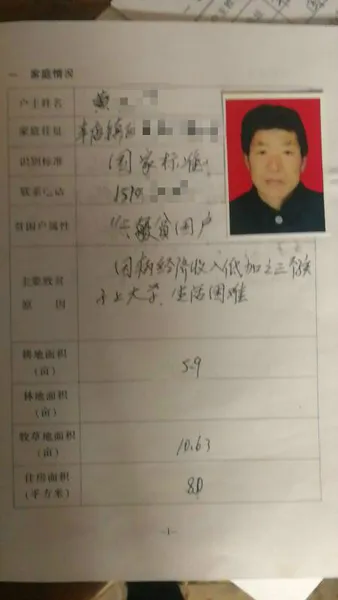 一 家庭情况
户主姓名 黄
家庭住址
识别标准 国家标准
联系电话 1598
贫困户属性 一般贫困户
主要致贫 因病经济收入低加之三个孩
原因 子上大学、生活困难
耕地面积
(亩) 5.9
林地面积
(亩)
牧草地面积
(亩) 10.63
住房面积
(平方米) 80
-1-